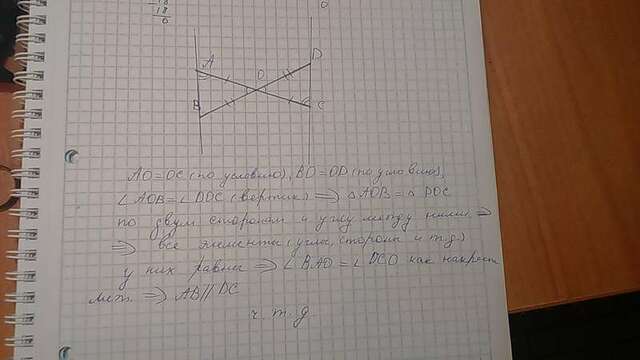 18
18
6
0
A
D
O
B
C
AO=OC (по условию), BO=OD (по условию),
∠AOB=∠DOC (вертик) ⟹ △AOB=△DOC
по двум сторонам и углу между ними ⟹
⟹ все элементы (углы, стороны и т.д.)
у них равны ⟹ ∠BAO=∠DCO как накрест
леж. ⟹ AB//DC
ч.т.д